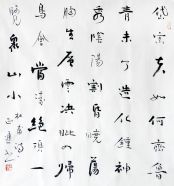 岱宗夫如何齊魯
青未了造化鍾神
秀陰陽割昏曉蕩
胸生層雲決眥入歸
鳥會當凌絕頂一
覽衆山小
杜甫詩